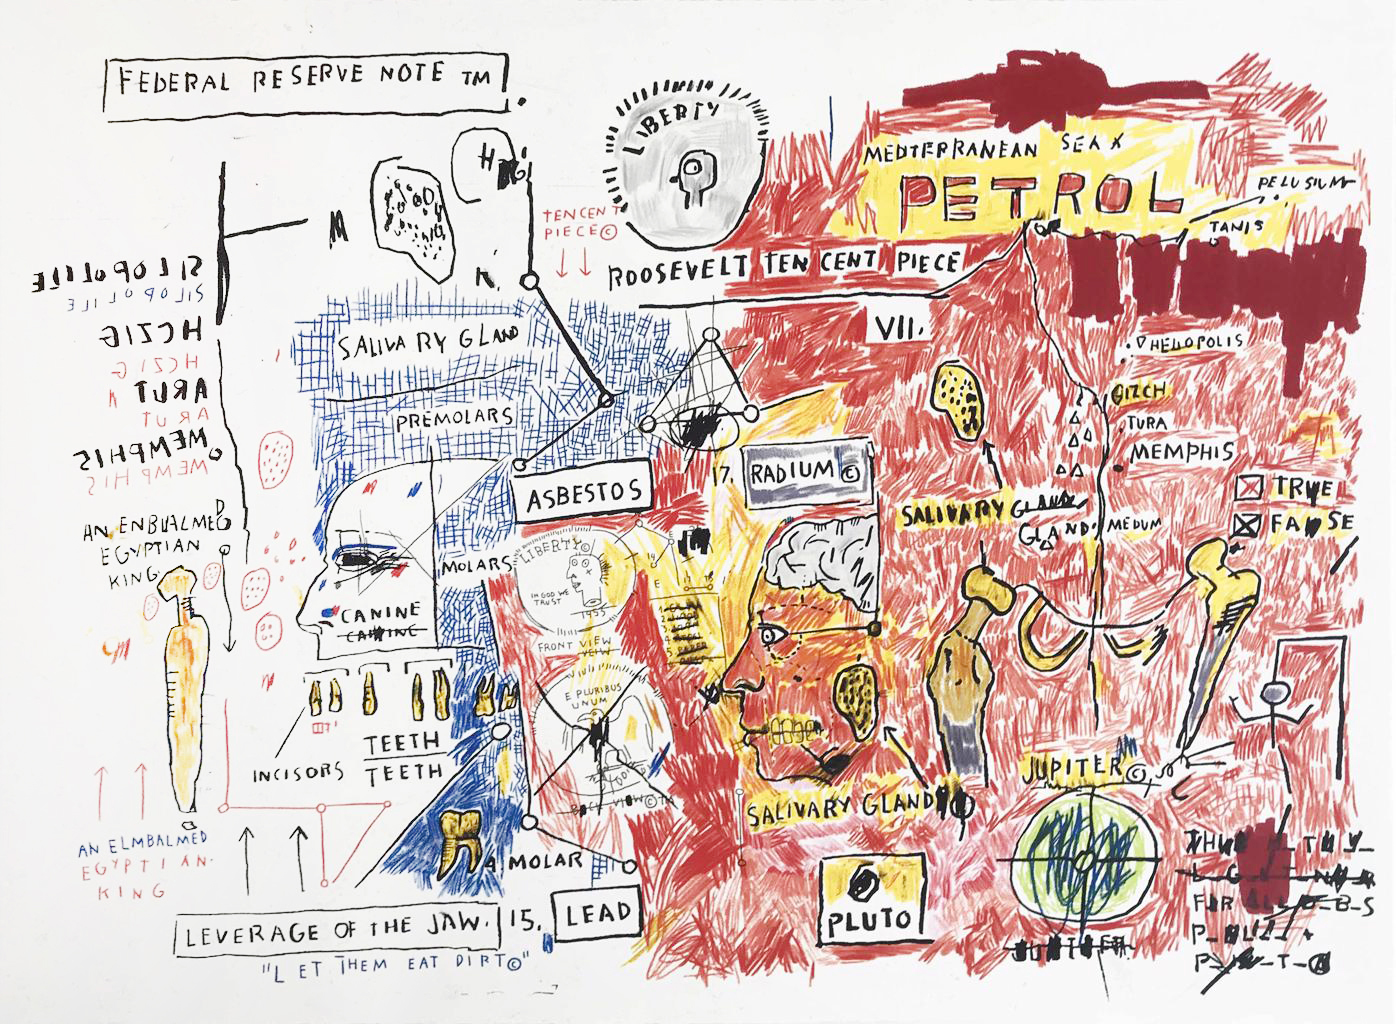 FEDERAL RESERVE NOTE TM
LIBERTY
MEDTERRANEAN SEA X
PETROL
PELUSIUM
TANIS
TEN CENT
PIECE©
ROOSEVELT TEN CENT PIECE
M
H
SILOPOLIE
SILOPOLIE
HCZIG
HCZIG
ARUT
ARUT
MEMPHIS
MEMPHIS
SALIVARY GLAND
PREMOLARS
VII.
HELIOPOLIS
GIZCH
TURA
MEMPHIS
MEDUM
17. RADIUM ©
ASBESTOS
SALIVARY GLAND
GLAND
TRUE
FALSE
AN ENBUALMED
EGYPTIAN
KING
MOLARS
CANINE
CANINE
LIBERTY©
IN GOD WE
TRUST
1955
FRONT VIEW
VEIW
E PLURIBUS
UNUM
BACK VIEW©TM
TEETH
TEETH
INCISORS
SALIVARY GLAND
JUPITER©
AN ELMBALMED
EGYPTIAN.
KING
A MOLAR
PLUTO
JUPITER
LEVERAGE OF THE JAW. 15. LEAD
"LET THEM EAT DIRT©"